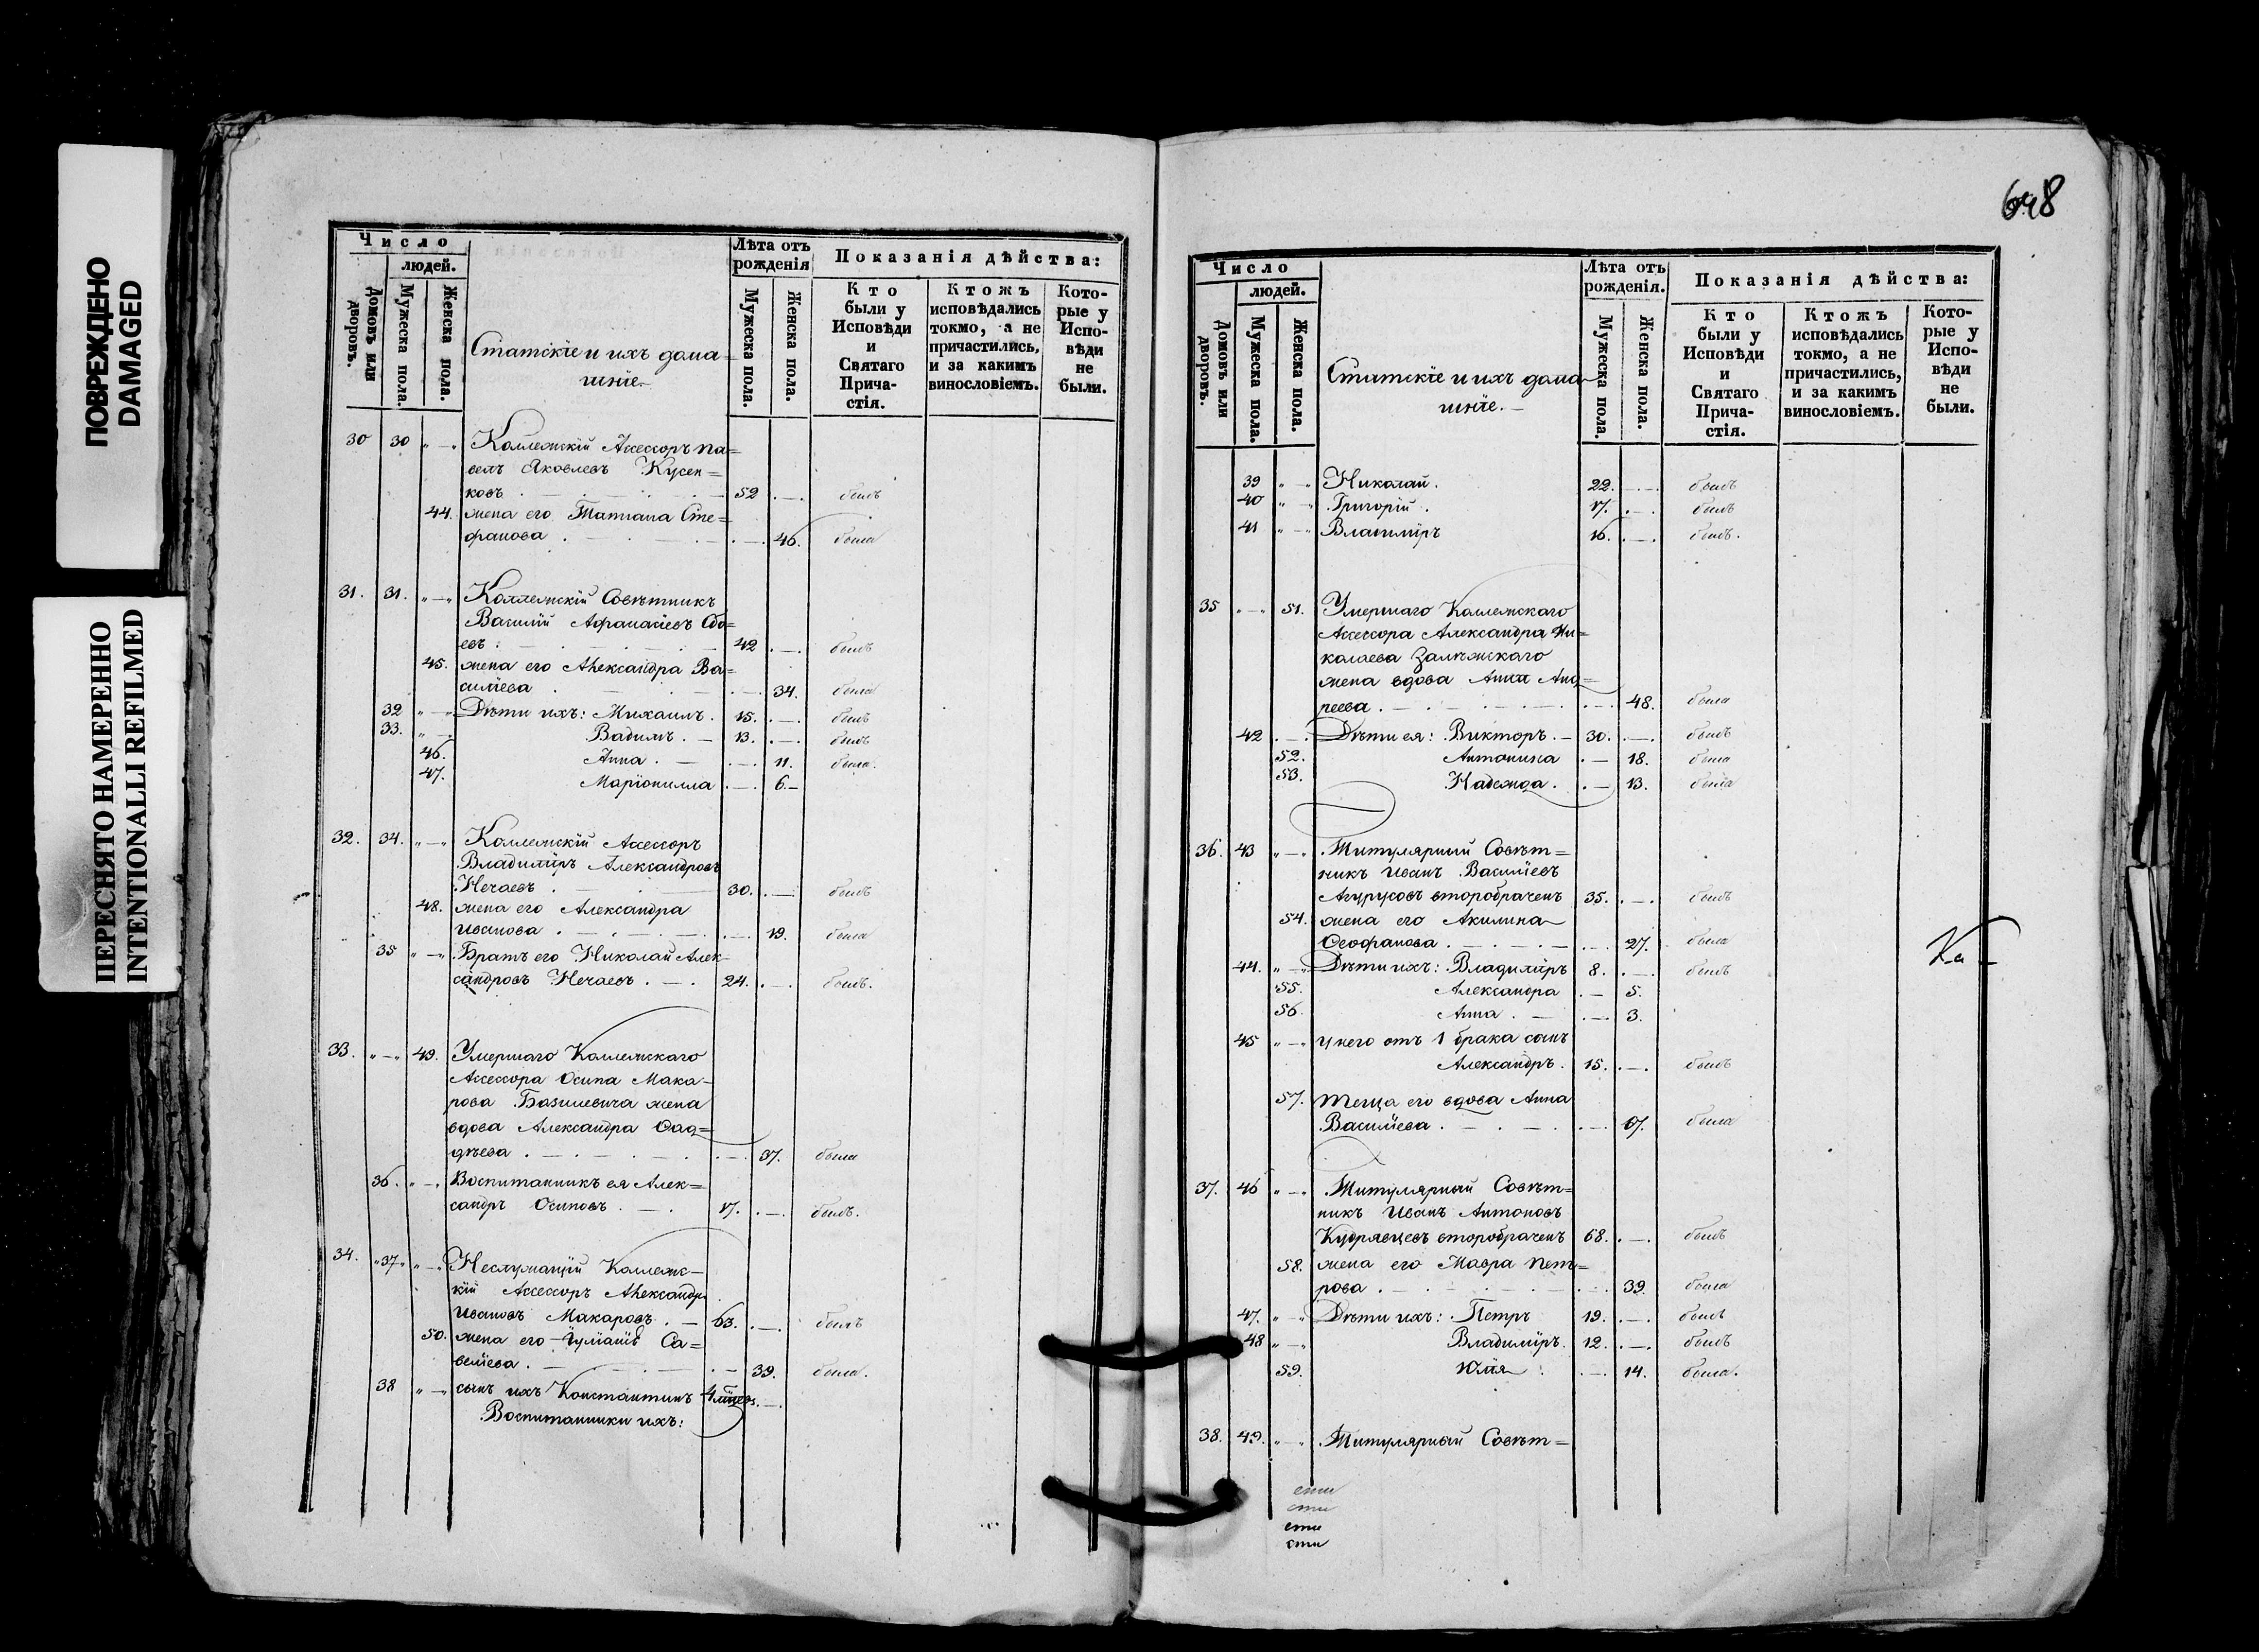 ПОВРЕЖДЕНО
DAMAGED
ПЕРЕСНЯТО НАМЕРЕННО
INTENTIONALLI REFILMED
Число
людей.
Домовъ или дворовъ.
Мужеска пола.
Женска пола.
Статскіе и ихъ дома=
шніе.
Лѣта отъ рожденія
Мужеска пола.
Женска пола.
Показанія дѣйства:
Кто были у Исповѣди и Святаго Прича-стія.
Ктожъ исповѣдались токмо, а не причастились, и за какимъ винословіемъ.
Кото-рые у Испо-вѣди не были.
30 30 „—„ Коллежскій Ассессоръ Па=
велъ Яковлевъ Кусен=
ковъ 52 .—. былъ
44. жена его Татіана Сте=
фанова .—. 46. была
31. 31. „—„ Коллежскій Совѣтникъ
Василій Афанасіевъ
евъ: 42 .—. былъ
45. жена его Александра Ва=
силіева .—. 34. была
32 „—„ Дѣти ихъ: Михаилъ. 15. .—. былъ
33. „—. Вадимъ. — 13. .—. былъ
46. Анна. — .—. 11. была.
47. Маріонилла .—. 6.—
32. 34. „—„ Коллежскій Ассессоръ
Владиміръ Александровъ
Нечаевъ 30. .— былъ
48. жена его Александра
Иванова .—. 19. была
35 „—„ Братъ его Николай Алек-
сандровъ Нечаевъ. —. 24. .—. былъ.
33. „—„ 49. Умершаго Коллежскаго
Ассессора Осипа Мака-
рова Базилевича жена
вдова Александра Фад=
дѣева .—. 37. была
36. „—„ Воспитанникъ ея Алек=
сандръ Осиповъ 17. .—. былъ.
34. „37„ „—„ Неслужащій Коллежс-
кій Ассессоръ Александръ
Ивановъ Макаровъ. — 63. .—. былъ
50. жена его Са=
веліева .— 39. была.
38 „—„ сынъ ихъ Константинъ .—.
Воспитанники ихъ:
648
Число
людей.
Домовъ или дворовъ.
Мужеска пола.
Женска пола.
Статскіе и ихъ дома
шніе.—
Лѣта отъ рожденія.
Мужеска пола.
Женска пола.
Показанія дѣйства:
Кто были у Исповѣди и Святаго Прича-стія.
Ктожъ исповѣдались токмо, а не причастились, и за какимъ винословіемъ.
Кото-рые у Испо-вѣди не были.
39 „—„ Николай. 22. .—. былъ
40 „—„ Григорій. 17. .—. былъ
41 „—„ Владиміръ 16. .—. былъ.
35 „—„ 51. Умершаго Коллежскаго
Ассессора Александра Ни=
колаева Залѣжскаго
жена вдова Анна Анд=
реева .—. 48. была
42 .—. Дѣти ея: Викторъ.— 30. .—. былъ
52. Антонина .— 18. была
53. Надежда. .— 13. была
36. 43 „—„ Титулярный Совѣт=
никъ Иванъ Василіевъ
второбраченъ 35. .—. былъ
54. жена его Акилина
Феофанова .—. 27. была
44. „—„ Дѣти ихъ: Владиміръ 8. .—. былъ
55. Александра .— 5.
56. Анна. — .—. 3.
Ка
45 „—„ у него отъ 1 брака сынъ
Александръ. 15. .—. былъ
57. теща его вдова Анна
Василіева .—. 67. была
37. 46 „—„ Титулярный Совѣт=
никъ Иванъ Антоновъ
Кудрявцевъ второбраченъ 68. .—. былъ
58. жена его Мавра Пет=
рова .—. 39. была
47. „—„ Дѣти ихъ: Петръ 19. .—. былъ
48 „—„ Владиміръ. 12. .—. былъ
59. Юлія .—. 14. была.
38. 49. „—„ Титулярный Совѣт=